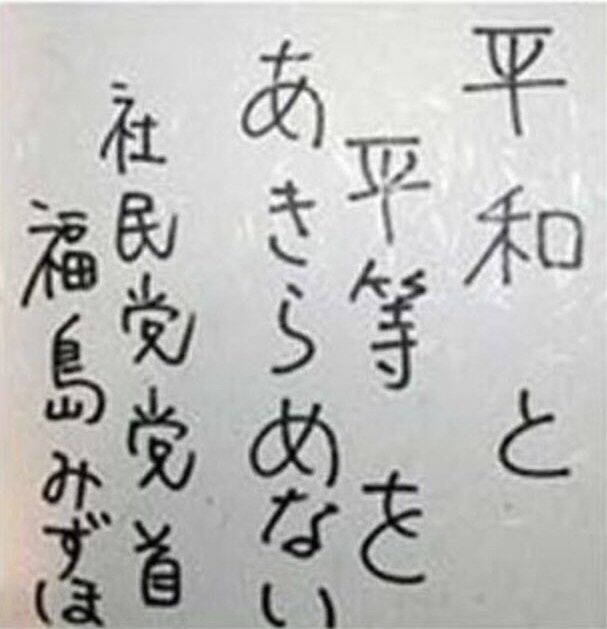 平和と
平等を
あきらめない
社民党党首
福島みずほ